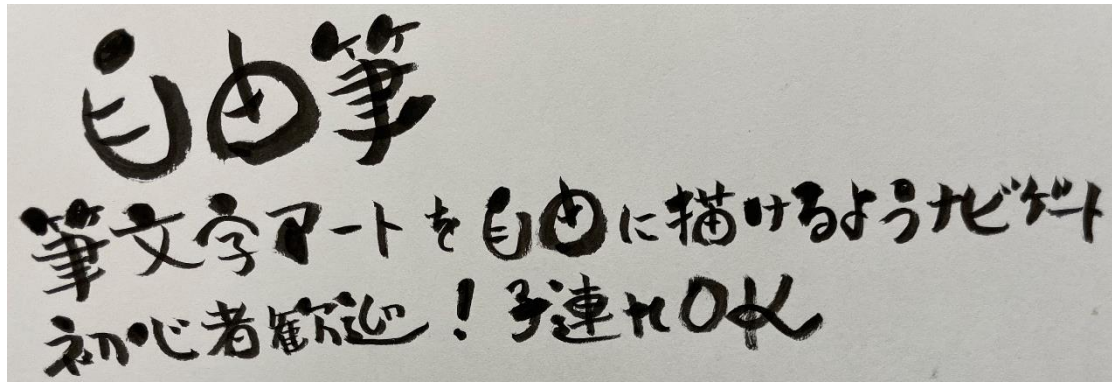 自由筆
筆文字アートを自由に描けるようナビゲート
初心者歓迎！子連れOK